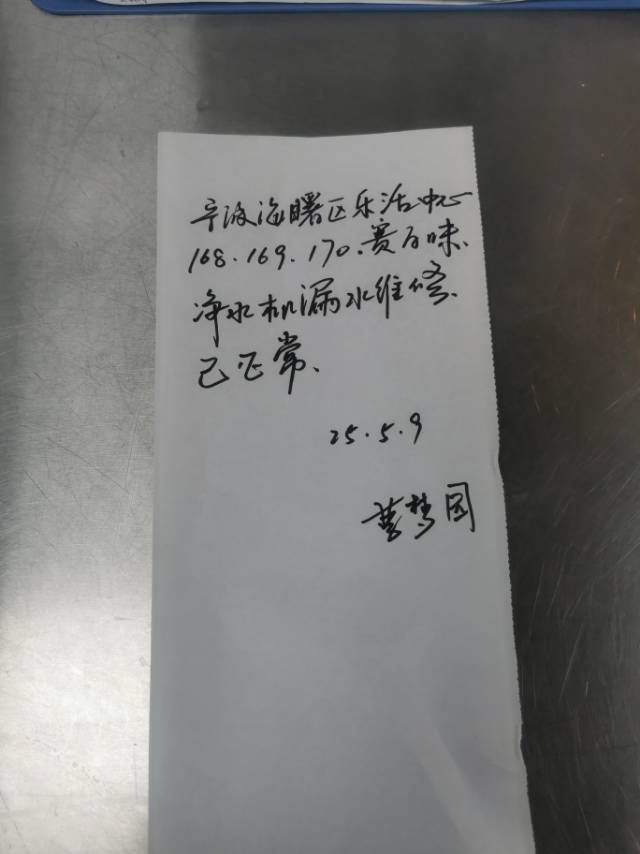 宁波海曙区乐活中心
168.169.170.赛百味.
净水机漏水维修.
已正常.
25.5.9
梦园